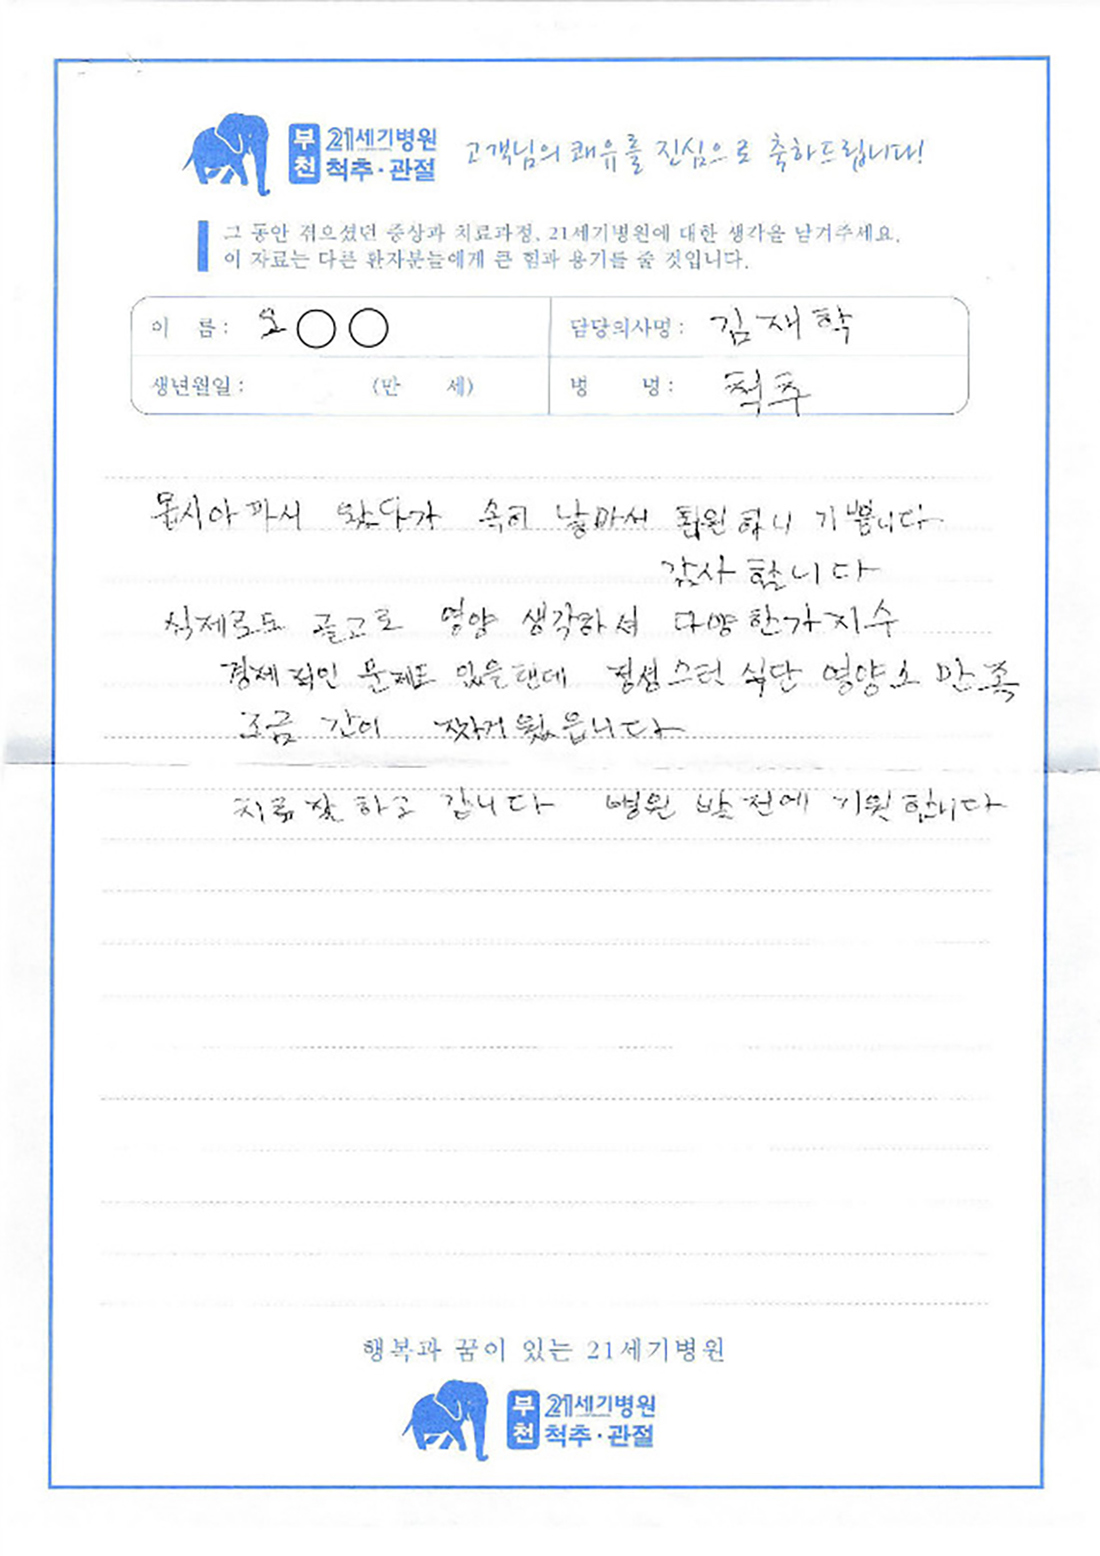 부천 21세기병원 척추·관절 고객님의 쾌유를 진심으로 축하드립니다!
그 동안 겪으셨던 증상과 치료과정, 21세기병원에 대한 생각을 남겨주세요.
이 자료는 다른 환자분들에게 큰 힘과 용기를 줄 것입니다.
이 름 : 오○○ 담당의사명 : 김재학
생년월일 : (만 세) 병 명 : 척추
몹시아파서 왔다가 속히 낳아서 퇴원하니 기쁨니다
감사합니다
식제료도 골고로 영양 생각하셔 다양한가지수
경제적인 문제도 있을탠데 정성스런 식단 영양소 만족
조금 간이 짜거웠읍니다
치류잘하고 갑니다 병원 발전에 기원합니다
행복과 꿈이 있는 21세기병원
부천 21세기병원 척추·관절